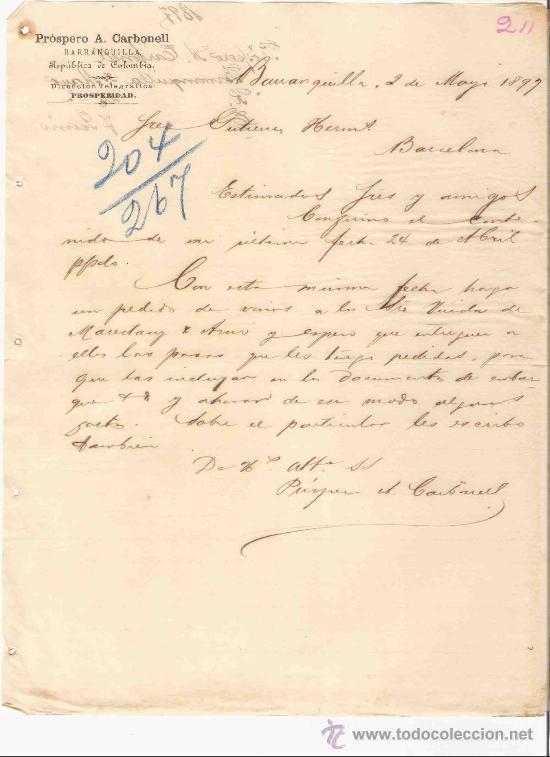 211
Próspero A. Carbonell
BARRANQUILLA
República de Colombia.
Dirección Telegráfica:
PROSPERIDAD.
1897
Barranquilla, 2 de Mayo 1897
Sres Gutierres Herms.
Barcelona
204
267
Estimados Sres y amigos
Confirmo el conte-
nido de mi última fecha 24 de Abril
ppdo.
Con esta misma fecha hago
un pedido de vinos a los Sres Viuda de
Maristany & y espero que entreguen a
ellos las pasas que les tengo pedidas, para
que las incluyan en los documentos de embar
que && y ahorrar de ese modo algunos
gastos. Sobre el particular les escribo
tambien
De Uds. Atto. SS
Próspero A. Carbonell
www.todocoleccion.net